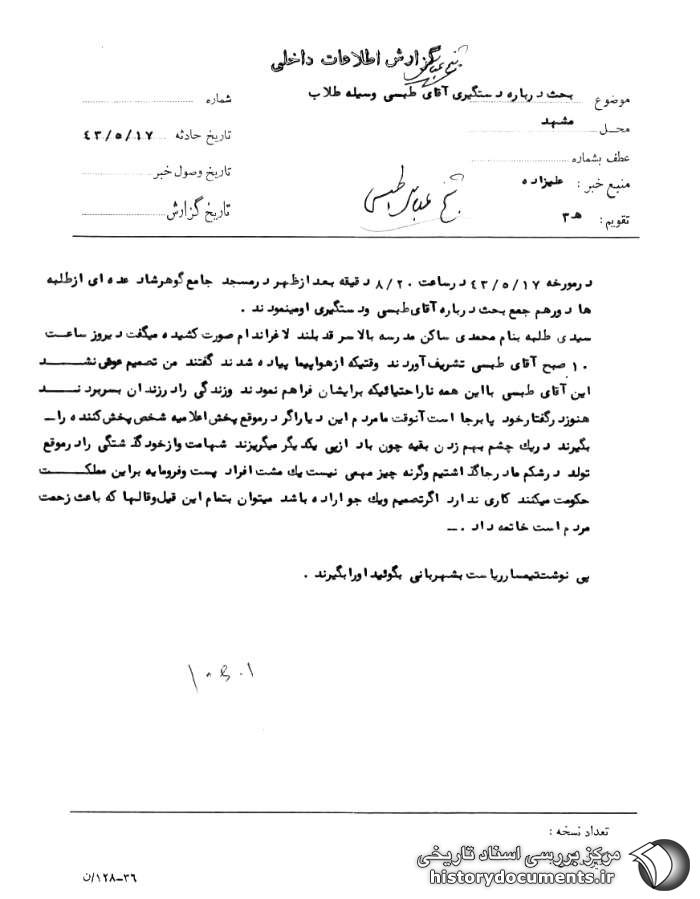 گزارش اطلاعات داخلی
شیخ عباس
موضوع بحث درباره دستگیری آقای طبسی وسیله طلاب
شماره
محل مشهد
تاریخ حادثه ۴۳/۵/۱۷
عطف بشماره
تاریخ وصول خبر
منبع خبر: علیزاده
تاریخ گزارش
تقویم: ه‍ ۳
شیخ عباس طبسی
درمورخه ۴۳/۵/۱۷ درساعت ۸/۲۰ دقیقه بعدازظهر درمسجد جامع گوهرشاد عده ای ازطلبه
ها دورهم جمع بحث درباره آقای طبسی ودستگیری اومینمودند .
سیدی طلبه بنام محمدی ساکن مدرسه بالاسر قدبلند لاغراندام صورت کشیده میگفت دیروز ساعت
۱۰ صبح آقای طبسی تشریف آوردند وقتیکه ازهواپیما پیاده شدند گفتند من تصمیم عوض نشد
این آقای طبسی بااین همه ناراحتیائیکه برایشان فراهم نمودند وزندگی رادرزندان بسربردند
هنوزدرگفتارخود پابرجا است آنوقت مامردم این دیاراگر درموقع پخش اعلامیه شخص پخش کننده را
بگیرند دریك چشم بهم زدن بقیه چون باد ازپی یکدیگر میگریزند شهامت وازخودگذشتگی رادرموقع
تولد درشکم مادرجاگذاشتیم وگرنه چیز مهمی نیست یك مشت افراد پست وفرومایه براین مملکت
حکومت میکنند کاری ندارد اگرتصمیم ویك جواراده باشد میتوان بتمام این قیل وقالها که باعث زحمت
مردم است خاتمه داد .
پی نوشت تیمسارریاست بشهربانی بگوئید اورابگیرند .
تعداد نسخه :
۱۲۸-۳۶/ن
مرکز بررسی اسناد تاریخی
historydocuments.ir